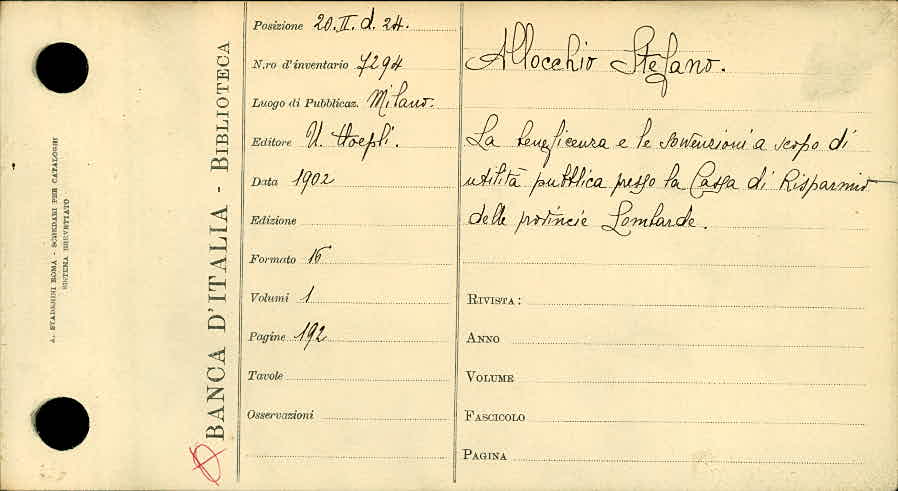 A. STADERINI ROMA - SCHEDARI PER CATALOGHI
SISTEMA BREVETTATO
BANCA D'ITALIA - BIBLIOTECA
Posizione 20. II. d. 24.
N.ro d'inventario 7294
Luogo di Pubblicaz. Milano.
Editore U. Hoepli.
Data 1902
Edizione
Formato 16
Volumi 1
Pagine 192
Tavole
Osservazioni
Allocchio Stefano.
La beneficenza e le sovvenzioni a scopo di
utilità pubblica presso la Cassa di Risparmio
delle provincie Lombarde.
RIVISTA:
ANNO
VOLUME
FASCICOLO
PAGINA